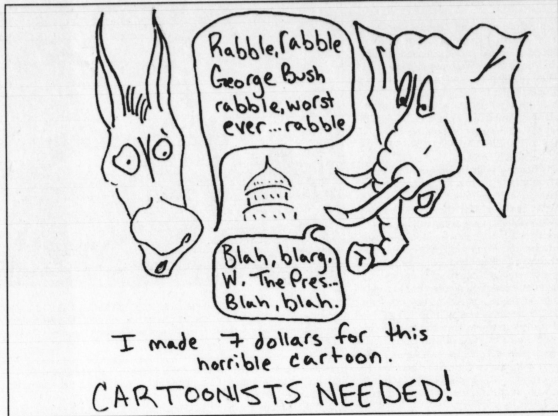 Rabble, rabble
George Bush
rabble, worst
ever... rabble
Blah, blarg.
W. The Pres...
Blah, blah.
I made 7 dollars for this
horrible cartoon.
CARTOONISTS NEEDED!